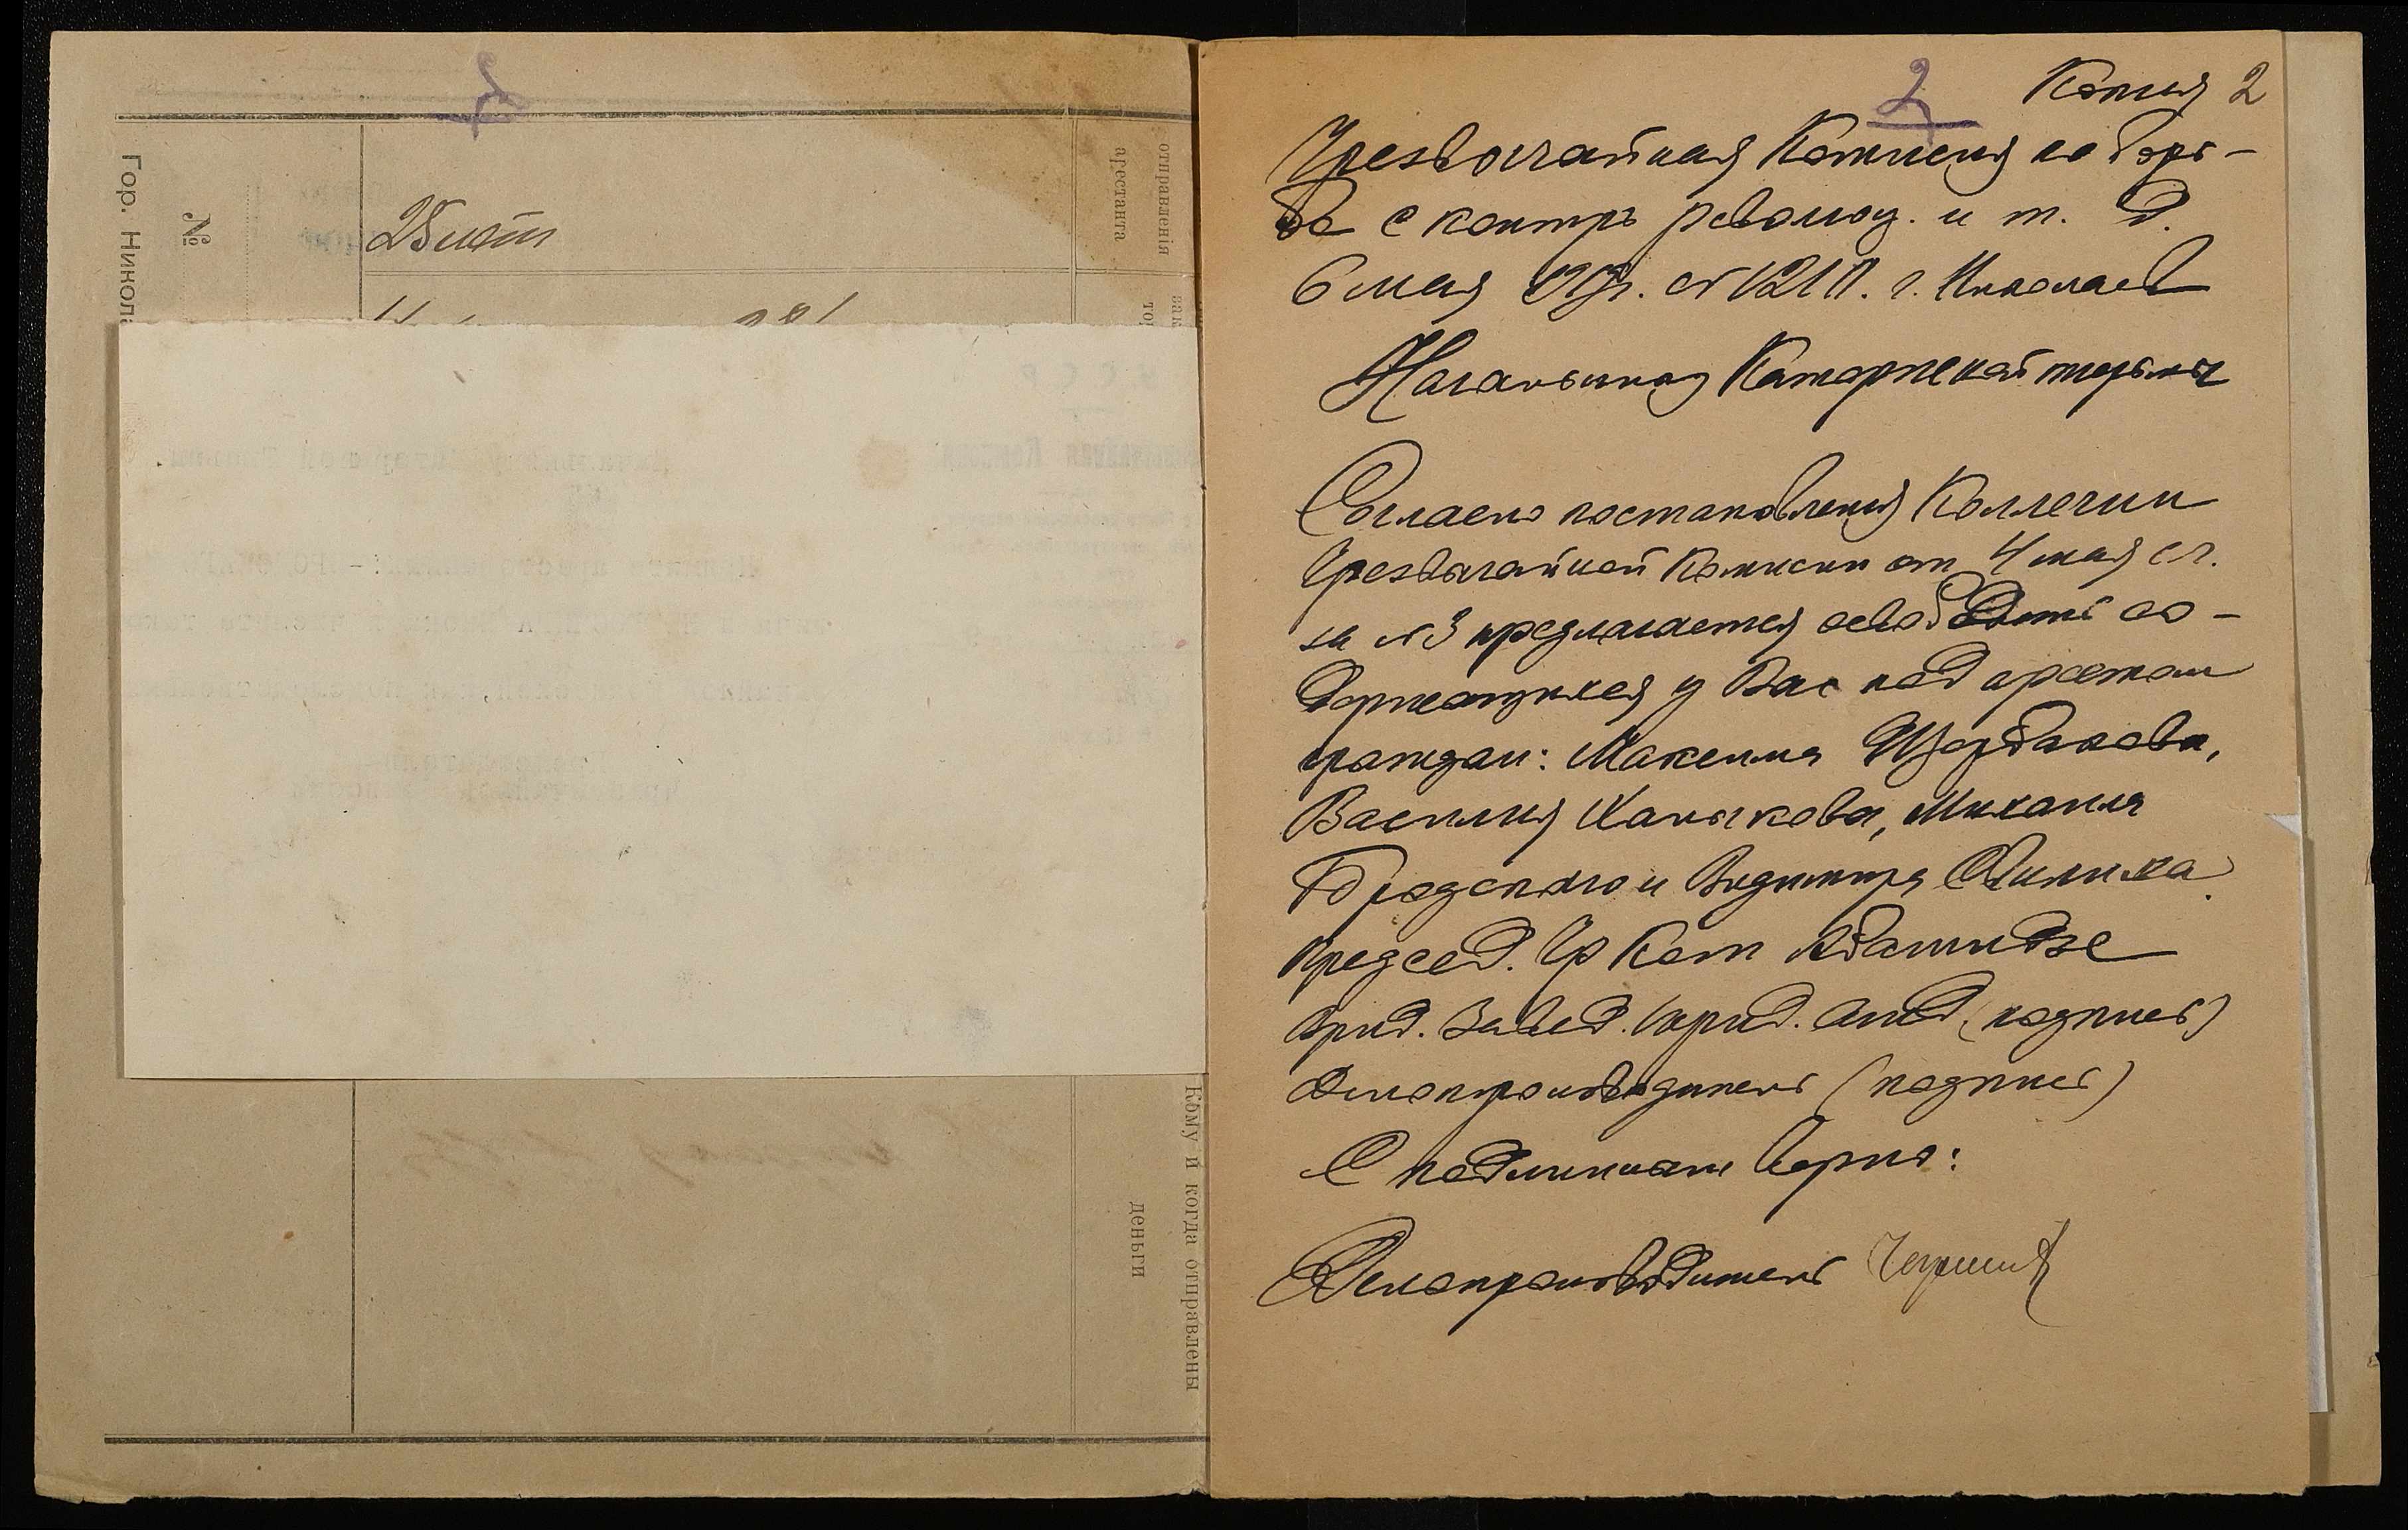 Гор. Никола
№
25 лет
отправленія
арестанта
Кому и когда отправлены
деньги
2 Копия 2
Чрезвычайная Комисия по борь-
бе с контр революц. и т. д.
6 мая 1919г. № 1211. г. Николаев
Начальнику Каторжской тюрьмы
Согласно постановления Коллегии
Чрезвычайной Комиссии от 4 мая с.г.
за № 3 предлагается освободить со-
держащихся у Вас под арестом
граждан: Максима Щербакова,
Василия Ханыкова, Михаила
Бродского и Владимира Свилика.
Председ. Чр Ком Абашидзе
Врид. Завед. Юрид. отд. (подпись)
Делопроизводитель (подпись)
С подлинным верно:
Делопроизводитель